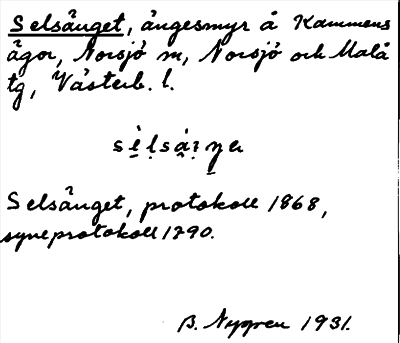 Selsånget, ångesmyr å Kammens
ägor, Norsjö sn, Norsjö och Malå
tg, Västerb. l.
Selsånget, protokoll 1868,
syneprotokoll 1790.
B. Nygren 1931.